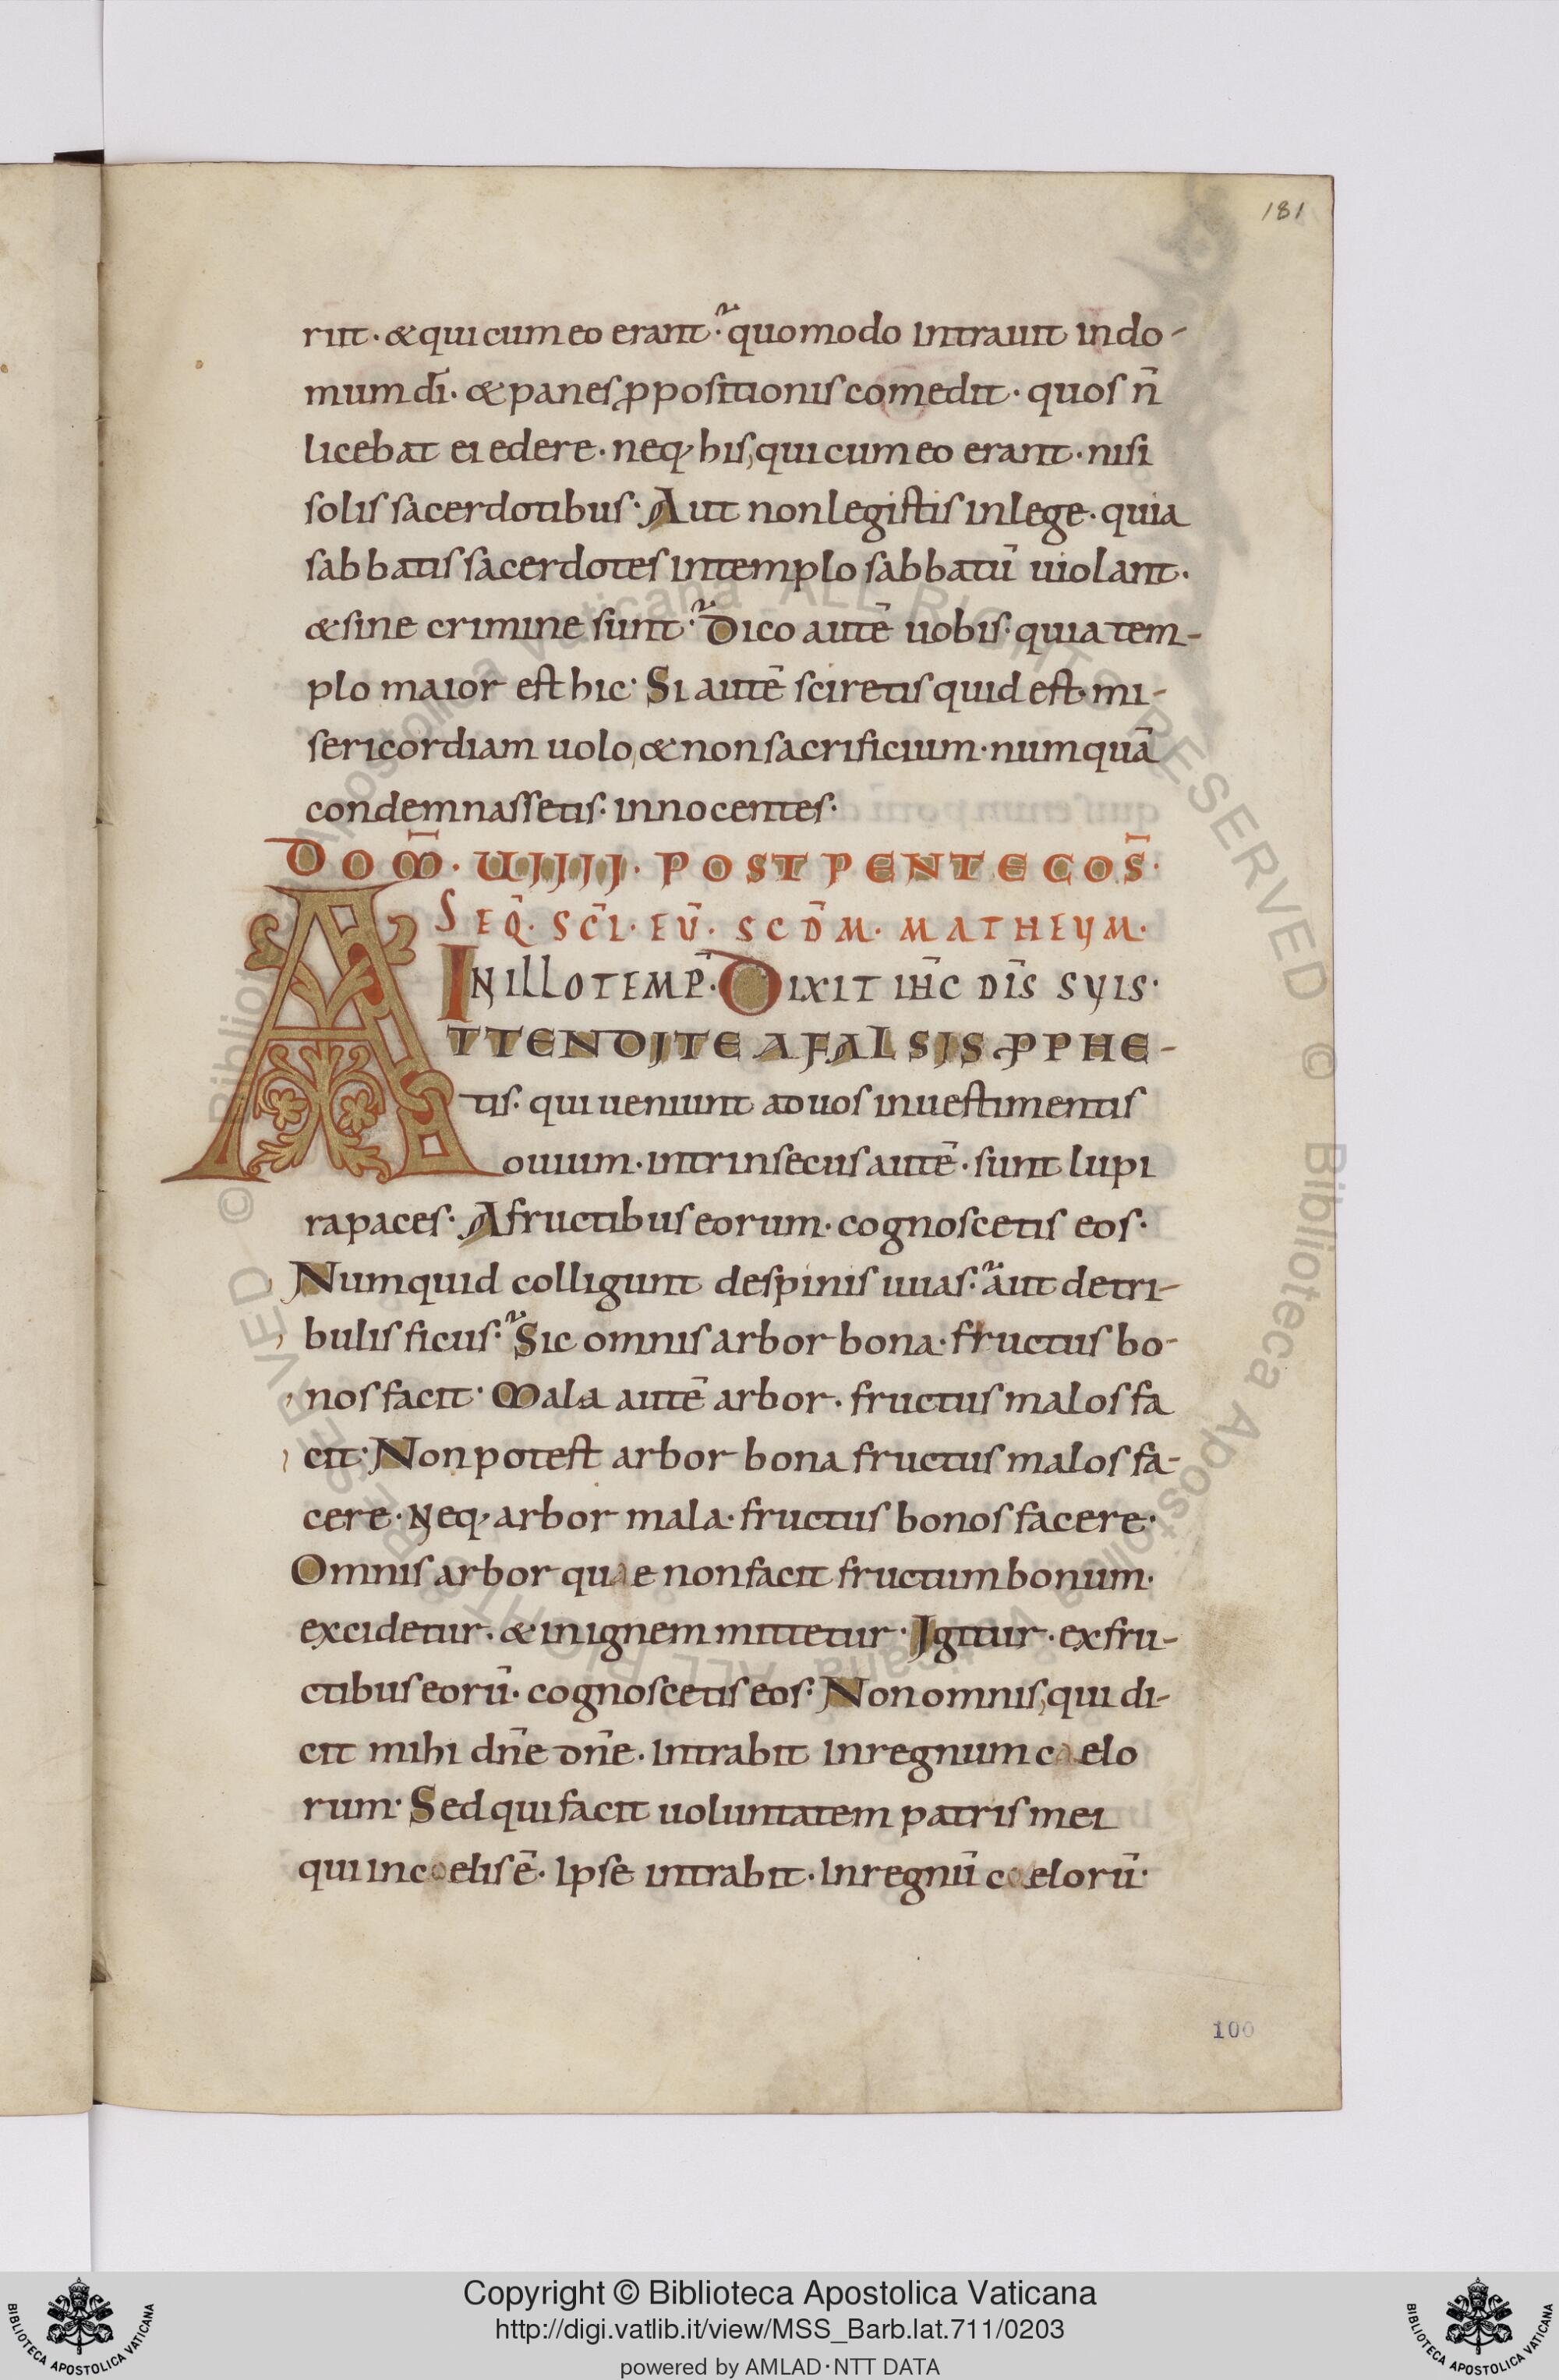 181
riit · & qui cum eo erant · quomodo intrauit in do-
mum dī · & panes ꝓpositionis comedit · quos n̄
licebat ei edere · neq; his, qui cum eo erant · nisi
solis sacerdotibus · Aut non legistis in lege · quia
sabbatis sacerdotes in templo sabbatū uiolant ·
& sine crimine sunt · Dico autē uobis · quia tem-
plo maior est hic · Si autē sciretis quid est · mi-
sericordiam uolo, & non sacrificium · numquā
condemnassetis · innocentes ·
DOM̄ · UIIII · POST PENTECOS̄ ·
SEQ̄ · SC̄I · EŪ · SCD̄M · MATHEUM ·
IN ILLO TEMP̄ · DIXIT IH̄C DĪS SUIS ·
ATTENDITE A FALSIS ꝒPHE-
tis · qui ueniunt ad uos in uestimentis
ouium · intrinsecus autē · sunt lupi
rapaces · A fructibus eorum · cognoscetis eos ·
Numquid colligunt de spinis uuas · aut de tri-
bulis ficus · Sic omnis arbor bona · fructus bo-
nos facit · Mala autē arbor · fructus malos fa
cit · Non potest arbor bona fructus malos fa-
cere · Neq; arbor mala · fructus bonos facere ·
Omnis arbor quae non facit fructum bonum ·
excidetur · & in ignem mittetur · Igitur · ex fru-
ctibus eorū · cognoscetis eos · Non omnis, qui di-
cit mihi dn̄e dn̄e · intrabit in regnum caelo
rum · Sed qui facit uoluntatem patris mei
qui in coelis ē · Ipse intrabit · In regnū coelorū ·
100
© Biblioteca Apostolica Vaticana ALL RIGHTS RESERVED © Biblioteca Apostolica Vaticana ALL RIGHTS RESERVED
Copyright © Biblioteca Apostolica Vaticana
http://digi.vatlib.it/view/MSS_Barb.lat.711/0203
powered by AMLAD·NTT DATA
BIBLIOTECA APOSTOLICA VATICANA
BIBLIOTECA APOSTOLICA VATICANA